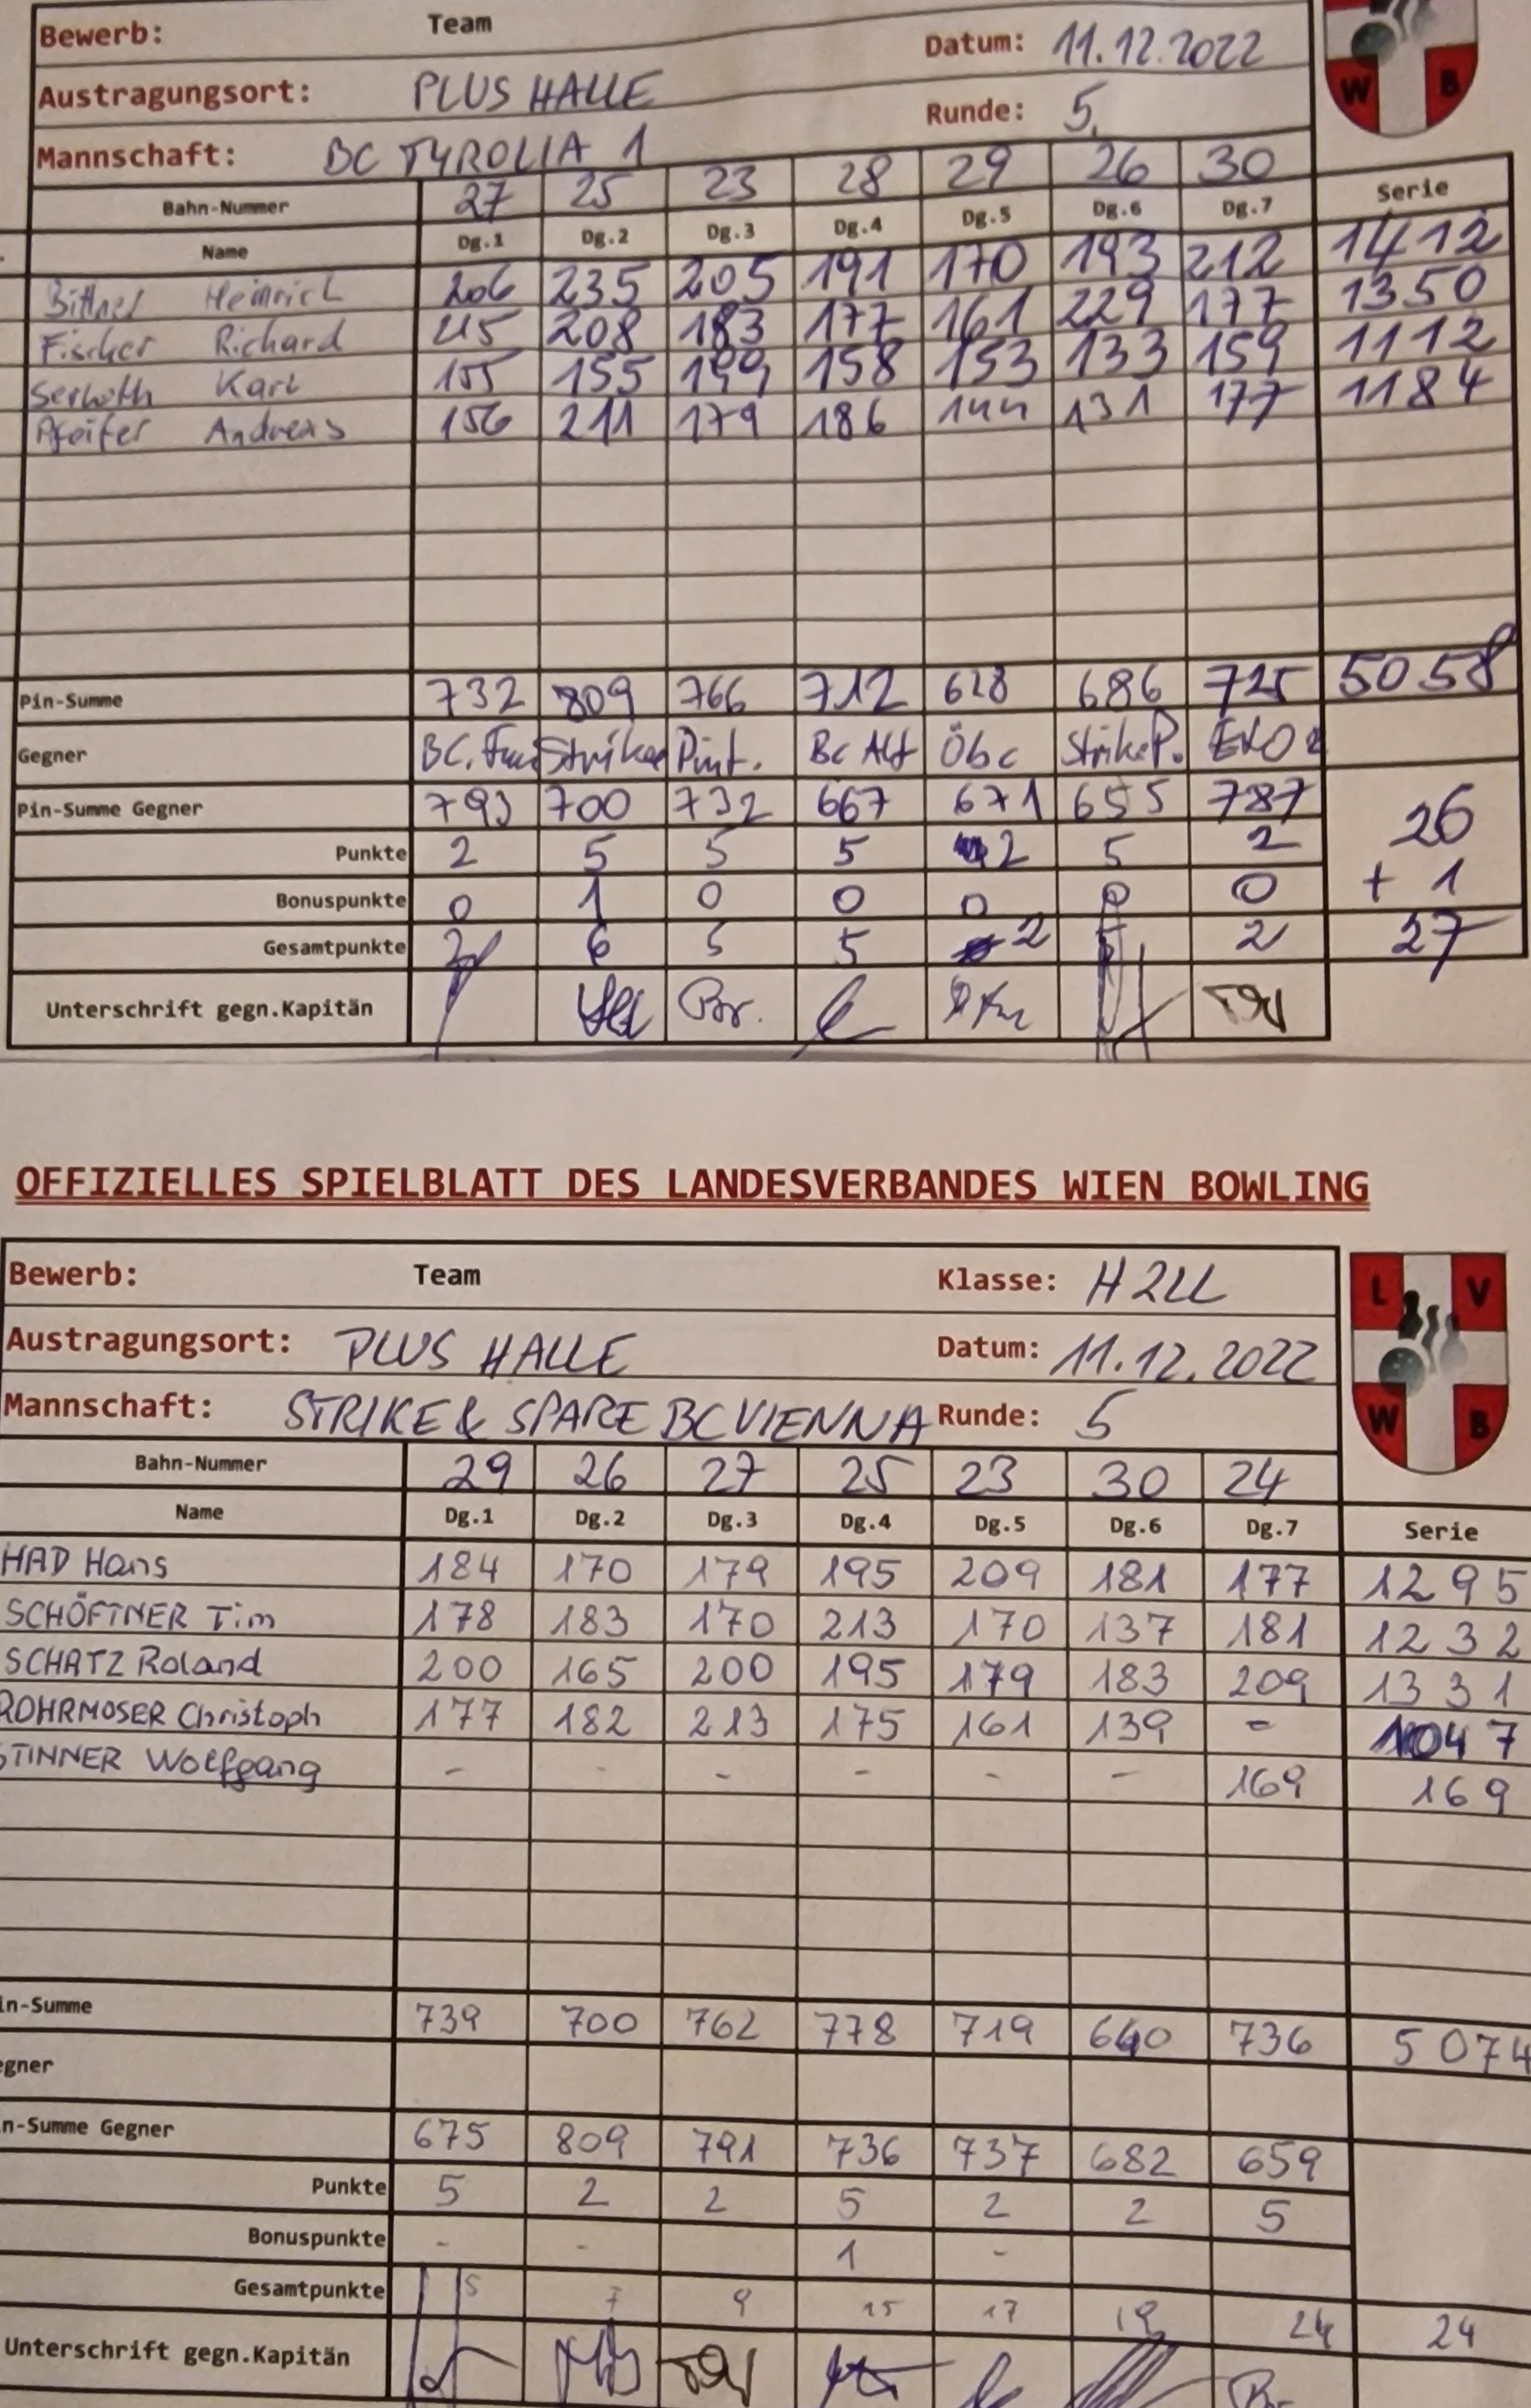 Bewerb: Team
Datum: 11.12.2022
Austragungsort: PLUS HALLE
Runde: 5.
Mannschaft: BC TYROLIA 1
W B
Bahn-Nummer 27 25 23 28 29 26 30 Serie
Name Dg.1 Dg.2 Dg.3 Dg.4 Dg.5 Dg.6 Dg.7
Bittner Heinrich 206 235 205 191 170 193 212 1412
Fischer Richard 215 208 183 177 161 229 177 1350
Karl 155 155 199 158 153 133 159 1112
Pfeifer Andreas 156 211 179 186 144 131 177 1184
Pin-Summe 732 809 766 712 628 686 725 5058
Gegner BC. Strike Pint. BC Alt Öbc Strike P. EKO 2
Pin-Summe Gegner 793 700 732 667 671 655 787
Punkte 2 5 5 5 2 5 2 26
Bonuspunkte 0 1 0 0 0 0 0 + 1
Gesamtpunkte 2 6 5 5 2 5 2 27
Unterschrift gegn.Kapitän
OFFIZIELLES SPIELBLATT DES LANDESVERBANDES WIEN BOWLING
Bewerb: Team Klasse: H2LL
Austragungsort: PLUS HALLE Datum: 11.12.2022
Mannschaft: STRIKE & SPARE BC VIENNA Runde: 5
L V
W B
Bahn-Nummer 29 26 27 25 23 30 24
Name Dg.1 Dg.2 Dg.3 Dg.4 Dg.5 Dg.6 Dg.7 Serie
HAD Hans 184 170 179 195 209 181 177 1295
SCHÖFTNER Tim 178 183 170 213 170 137 181 1232
SCHATZ Roland 200 165 200 195 179 183 209 1331
ROHRMOSER Christoph 177 182 213 175 161 139 - 1047
STINNER Wolfgang - - - - - - 169 169
in-Summe 739 700 762 778 719 640 736 5074
egner
n-Summe Gegner 675 809 791 736 737 682 659
Punkte 5 2 2 5 2 2 5
Bonuspunkte - - 1 -
Gesamtpunkte 5 7 9 15 17 19 24 24
Unterschrift gegn.Kapitän